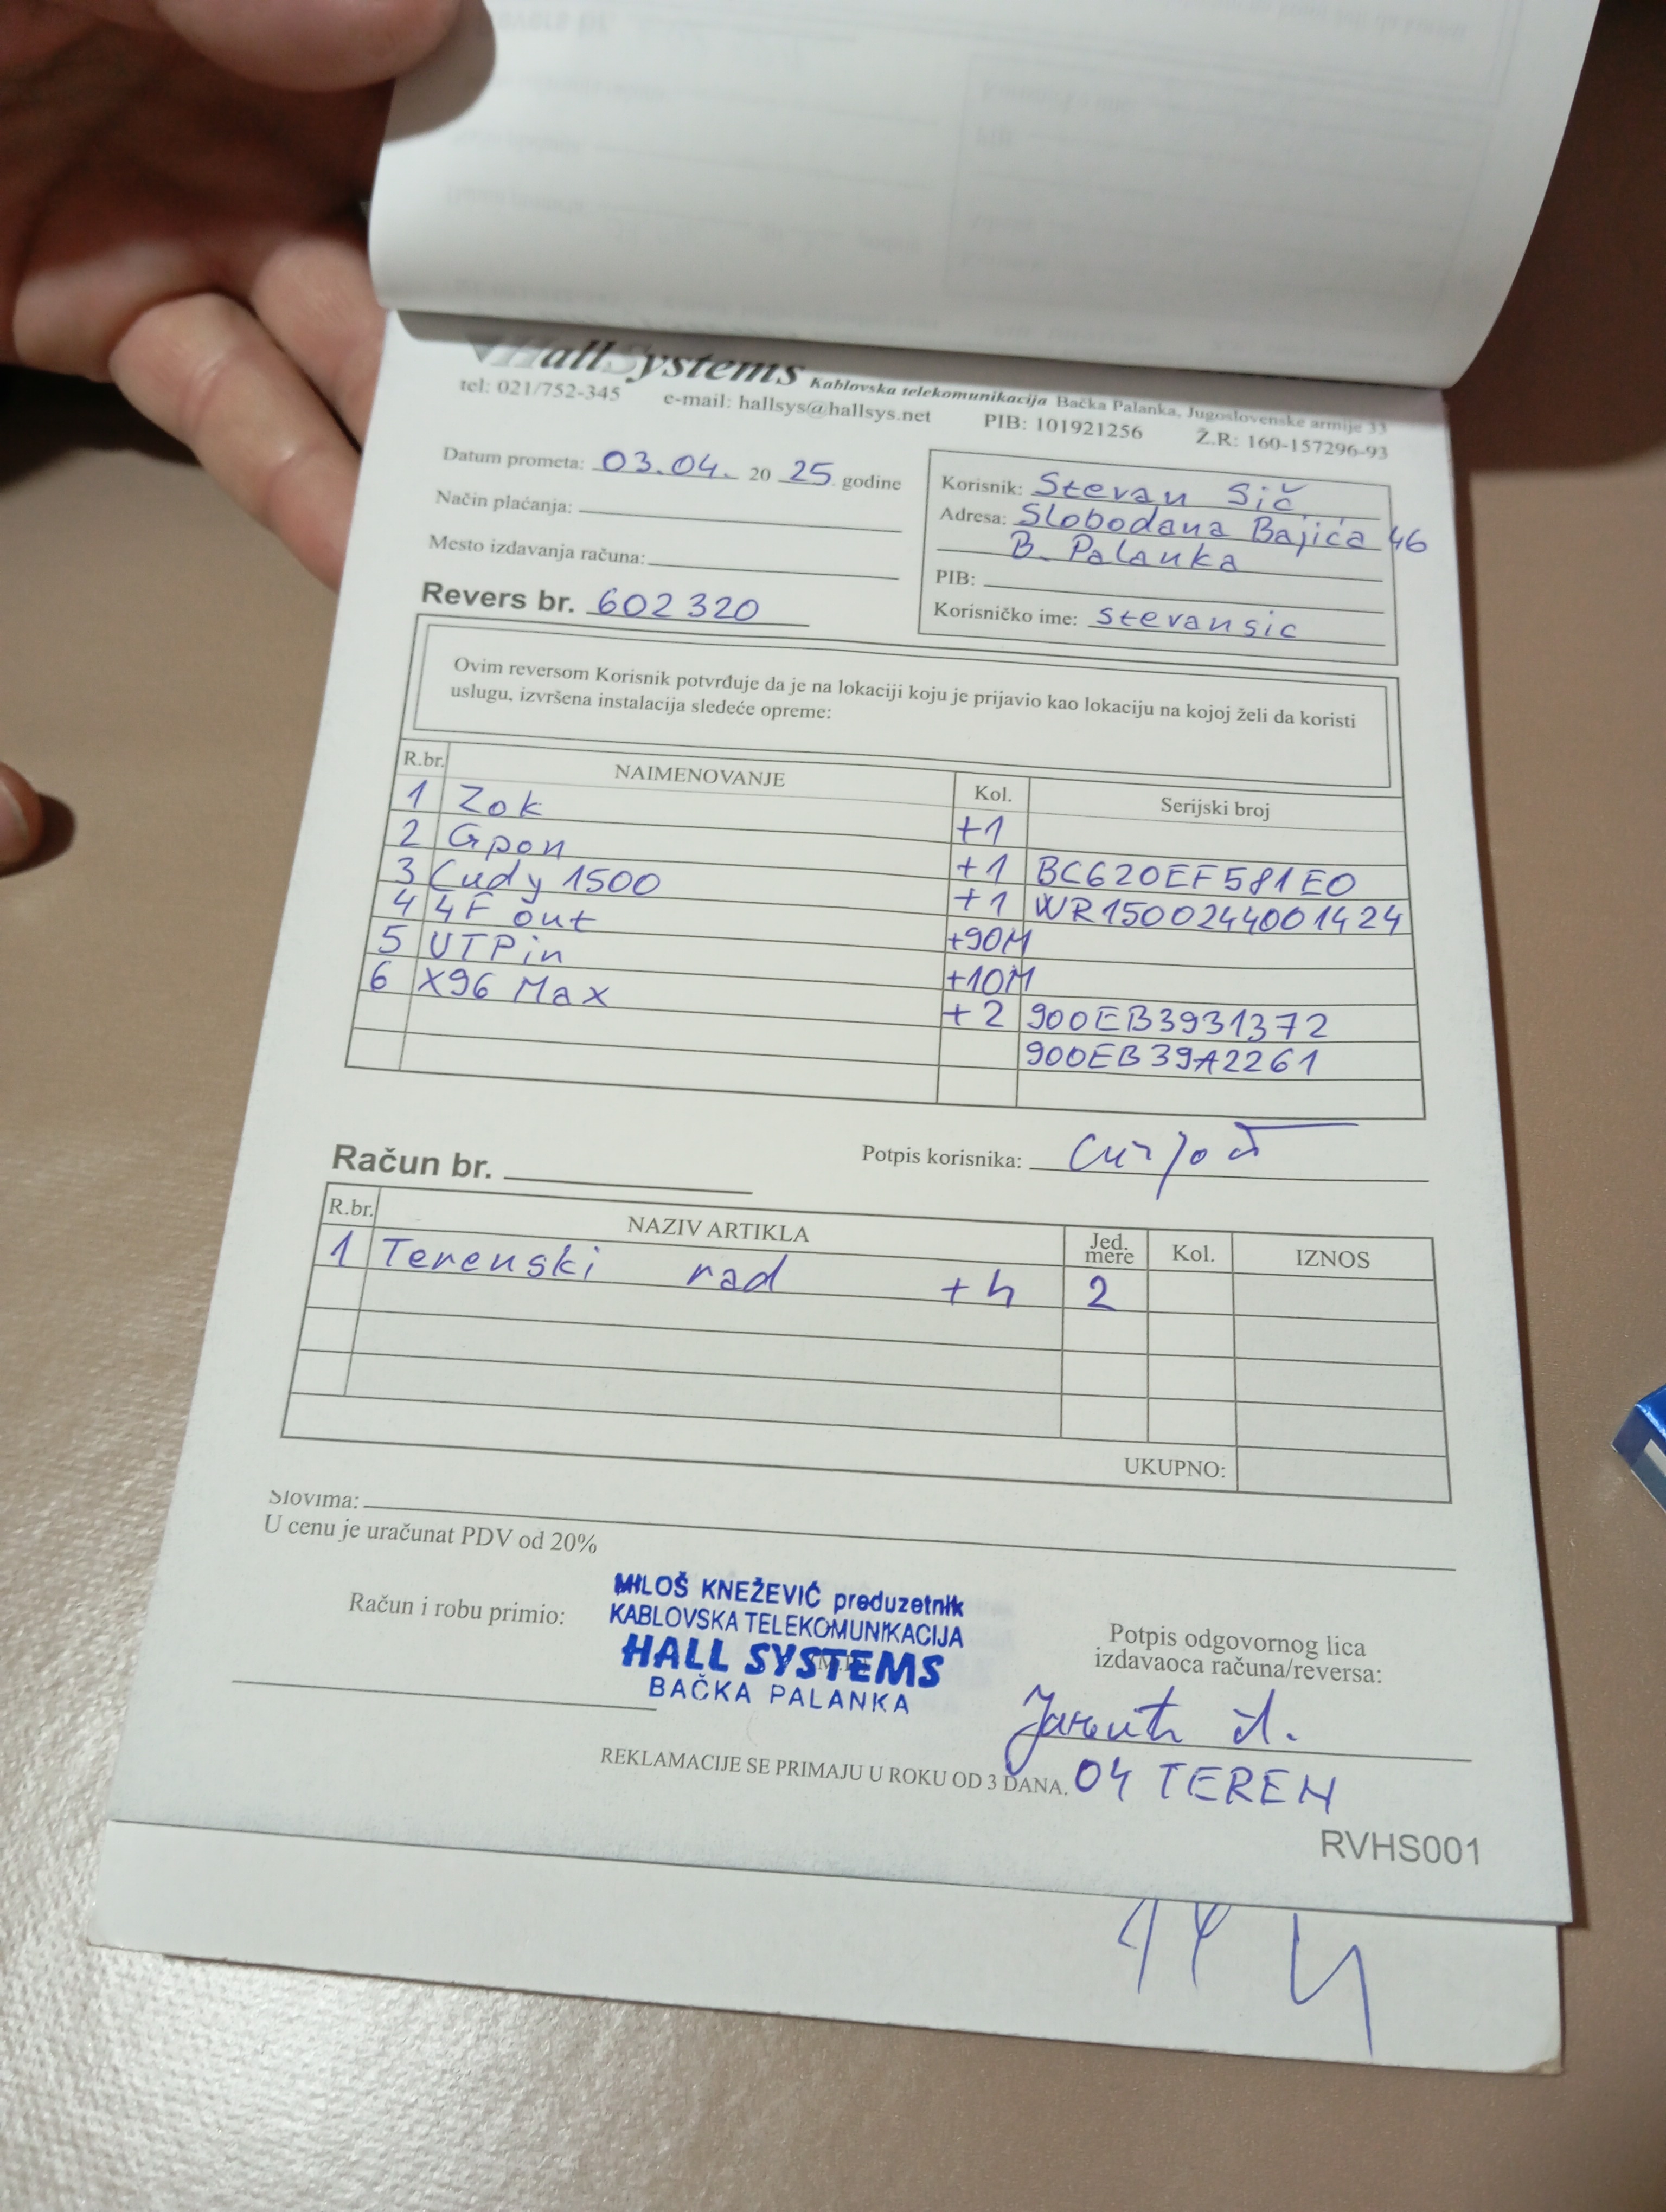 HallSystems Kablovska telekomunikacija Bačka Palanka, Jugoslovenske armije 33
tel: 021/752-345 e-mail: hallsys@hallsys.net PIB: 101921256 Ž.R: 160-157296-93
Datum prometa: 03.04. 20 25. godine
Način plaćanja:
Mesto izdavanja računa:
Revers br. 602320
Korisnik: Stevan Sič
Adresa: Slobodana Bajića 46
B. Palanka
PIB:
Korisničko ime: stevansic
Ovim reversom Korisnik potvrđuje da je na lokaciji koju je prijavio kao lokaciju na kojoj želi da koristi
uslugu, izvršena instalacija sledeće opreme:
R.br. NAIMENOVANJE Kol. Serijski broj
1 Zok +1
2 Gpon +1 BC620EF581E0
3 Cudy 1500 +1 WR1500244001424
4 4F out +90M
5 UTPin +10M
6 X96 Max +2 900EB3931372
900EB39A2261
Račun br. Potpis korisnika:
R.br. NAZIV ARTIKLA Jed. mere Kol. IZNOS
1 Terenski rad +h 2
UKUPNO:
Slovima:
U cenu je uračunat PDV od 20%
Račun i robu primio:
MILOŠ KNEŽEVIĆ preduzetnik
KABLOVSKA TELEKOMUNIKACIJA
HALL SYSTEMS
BAČKA PALANKA
Potpis odgovornog lica
izdavaoca računa/reversa:
REKLAMACIJE SE PRIMAJU U ROKU OD 3 DANA.
04 TEREN
RVHS001